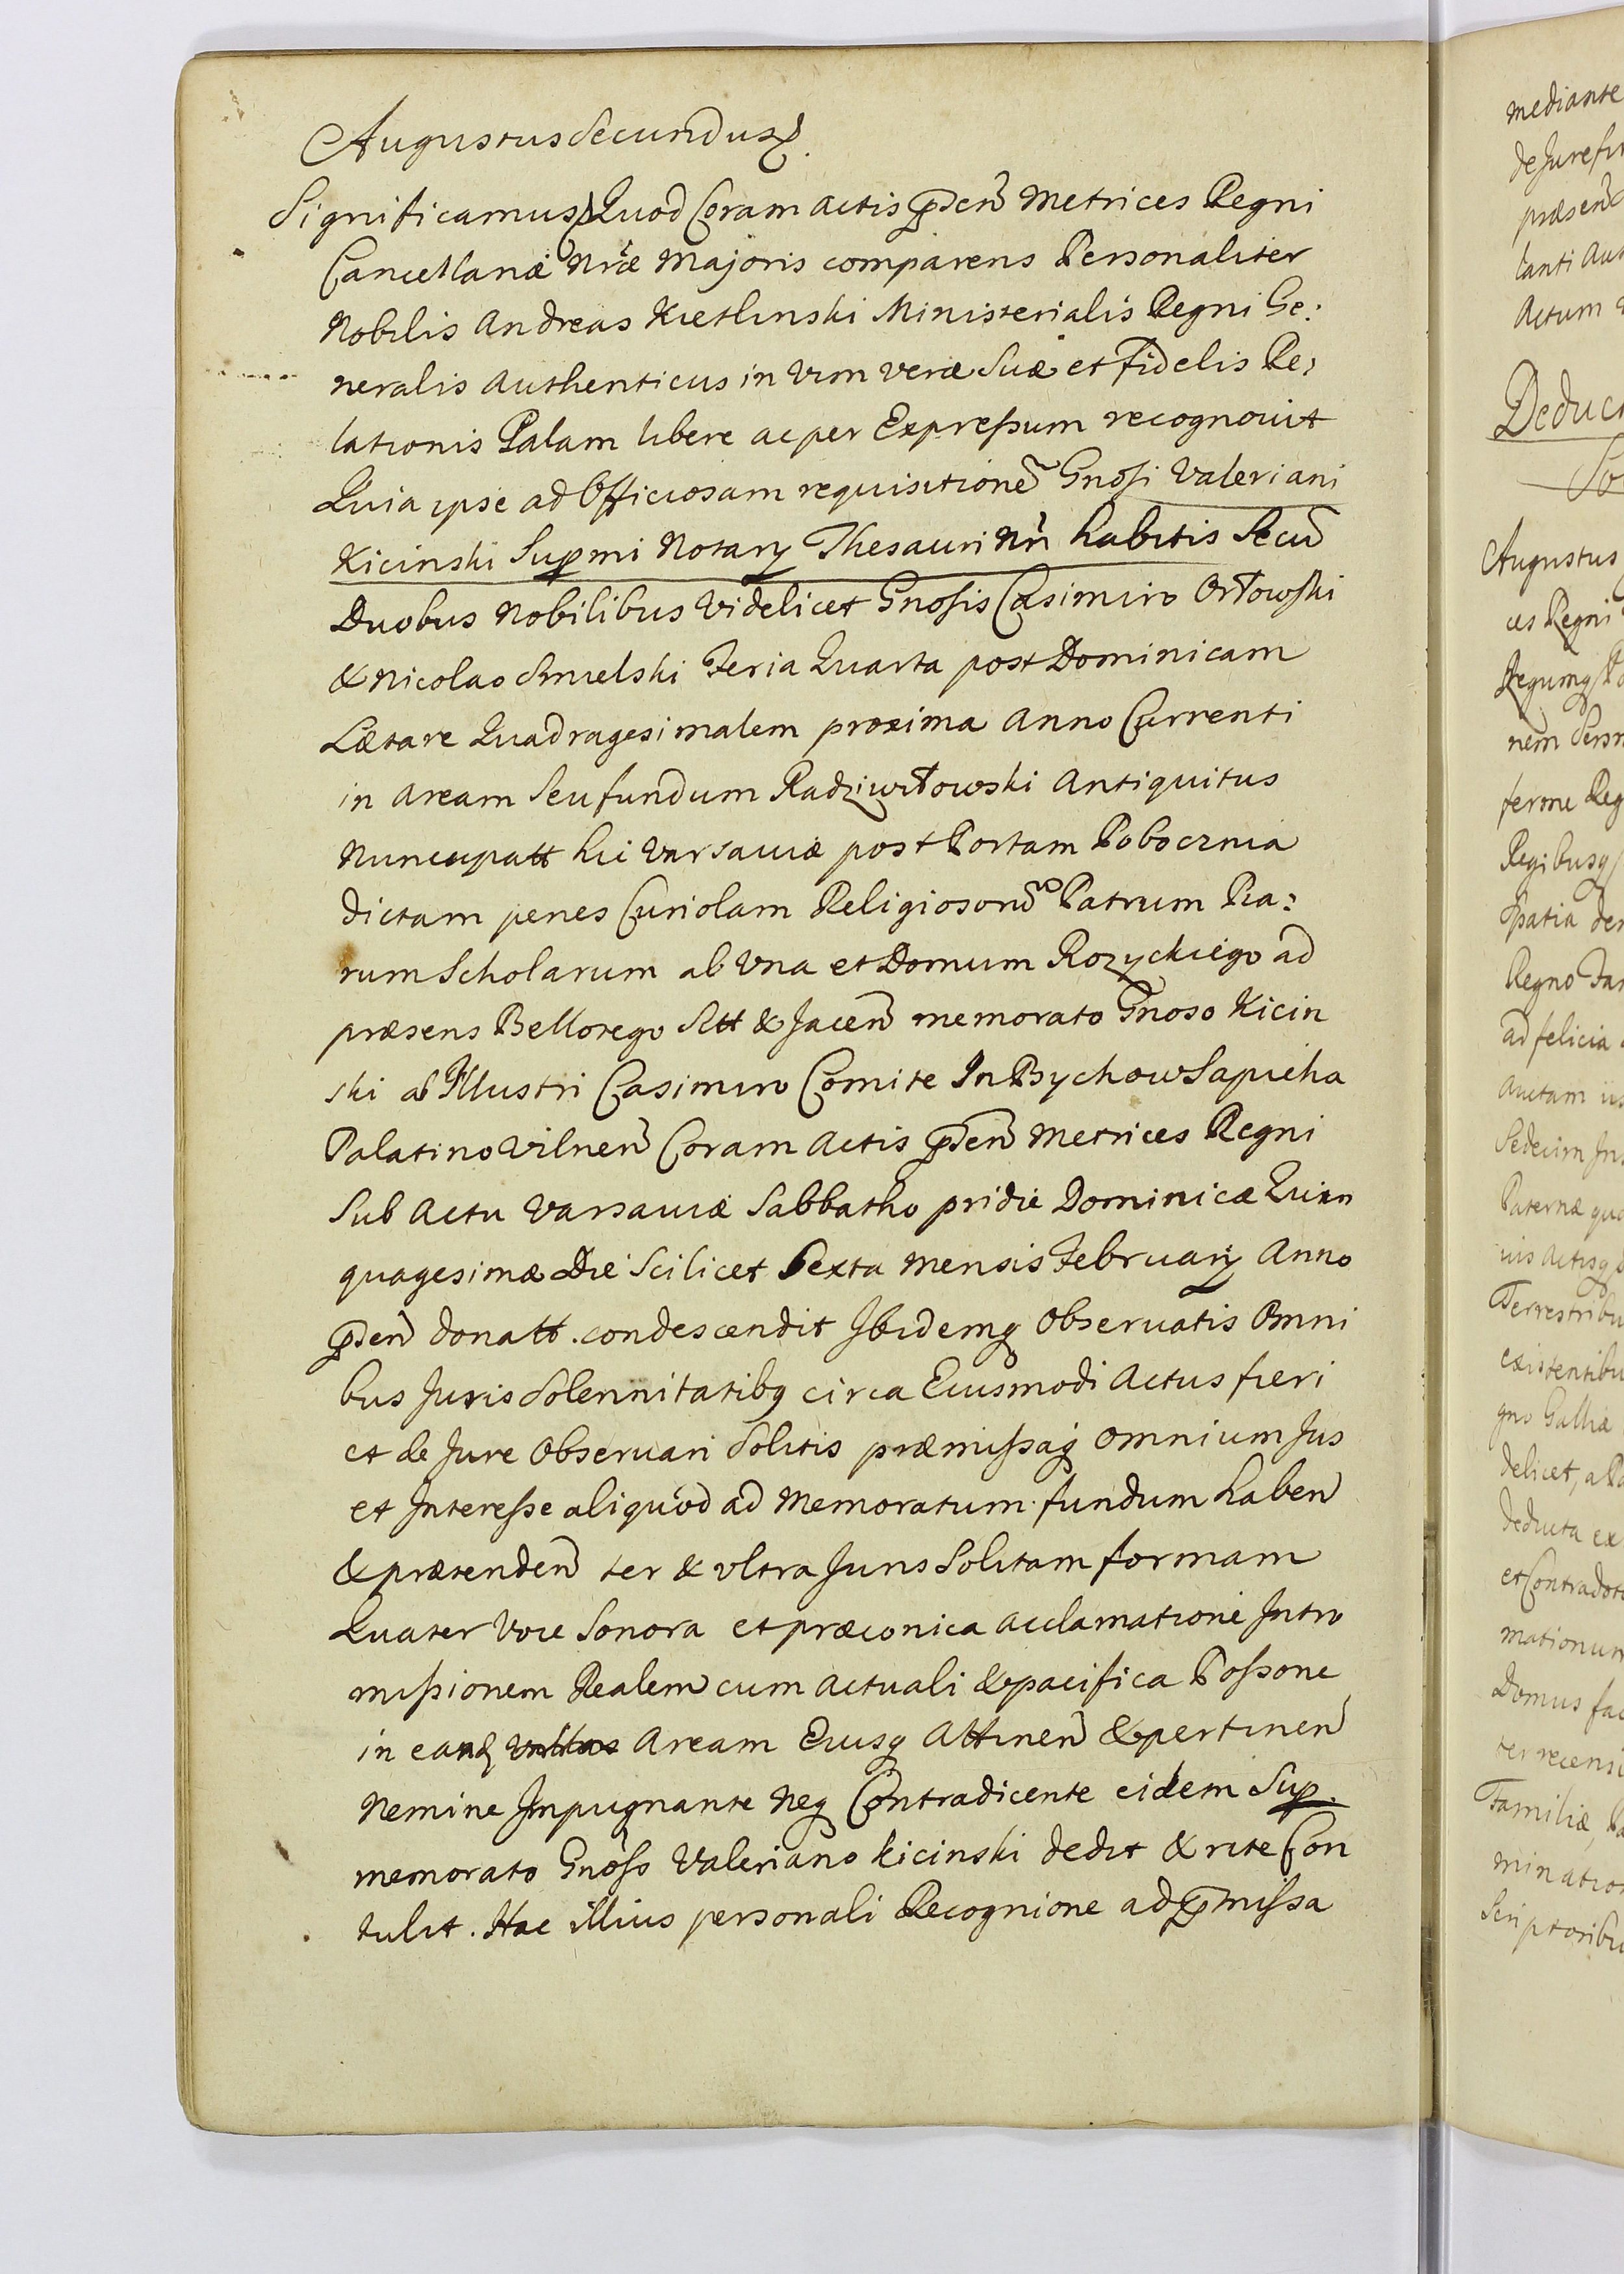 Augustus Secundus
Significamus Quod Coram Actis pſden̄ Metrices Regni
Cancellariæ Nr̃æ Majoris comparens Personaliter
Nobilis Andreas Kietlinski Ministerialis Regni Ge:
neralis Authenticus in Vim veræ Suæ et Fidelis Re:
lationis Palam libere ac per Expreſsum recognouit
Quia ipse ad Officiosam requisitionē Gnoſi Valeriani
Kicinski Supmi Notarÿ Thesauri Nri habitis Secū
Duobus Nobilibus Videlicet Gnoſis Casimiro Orłowſki
& Nicolao Smielski Feria Quarta post Dominicam
Lætare Quadragesimalem proxima Anno Currenti
in Aream Seu fundum Radziwiłłowski Antiquitus
Nuncupatt hic Varsauiæ post Portam Pobocznia
dictam penes Curiolam Religiosorū Patrum Pia:
rum Scholarum ab Vna et Domum Rozyckiego ad
præsens Bellorego Sitt & Jacen̄ memorato Gnoso Kicin
ski ab Illustri Casimiro Comite In Bychow Sapieha
Palatino Vilnen̄ Coram Actis pſden̄ Metrices Regni
Sub Actu Varsauiæ Sabbatho pridie Dominicæ Quin
quagesimæ Die Scilicet Sexta Mensis Februarÿ Anno
pſden̄ donatt. condescendit Ibidemq Obseruatis Omni
bus Juris Solennitatibq circa Eiusmodi Actus fieri
et de Jure Obseruari Solitis præmiſsaq omnium Jus
et Intereſse aliquod ad Memoratum fundum haben̄
& prætenden̄ ter & vltra Juris Solitam formam
Quater Voce Sonora et præconica acclamatione Intro
miſsionem Realem cum actuali & pacifica Poſsone
in eand Aream Eiusq Attinen̄ & pertinen̄
Nemine Impugnante Neq Contradicente eidem Sup.
memorato Gnoſo Valeriano Kicinski dedit & rite Con
tulit. Hac illius personali Recognione ad pmiſsa
mediante
de Jure
præsen
lanti
Actum
Deduc
So
Augustus
ces Regni
Regumq
nem
ferme Reg
Regibusq
patia
Regno
ad felicia
Autam
Sedecim
Paternæ
uis Actisq
Terrestribu
existentibu
gno Galliæ
delicet, a
deducta ex
et Contradot
mationum
Domus fa
ter recensi
Familiæ,
minatio
Scriptoribu